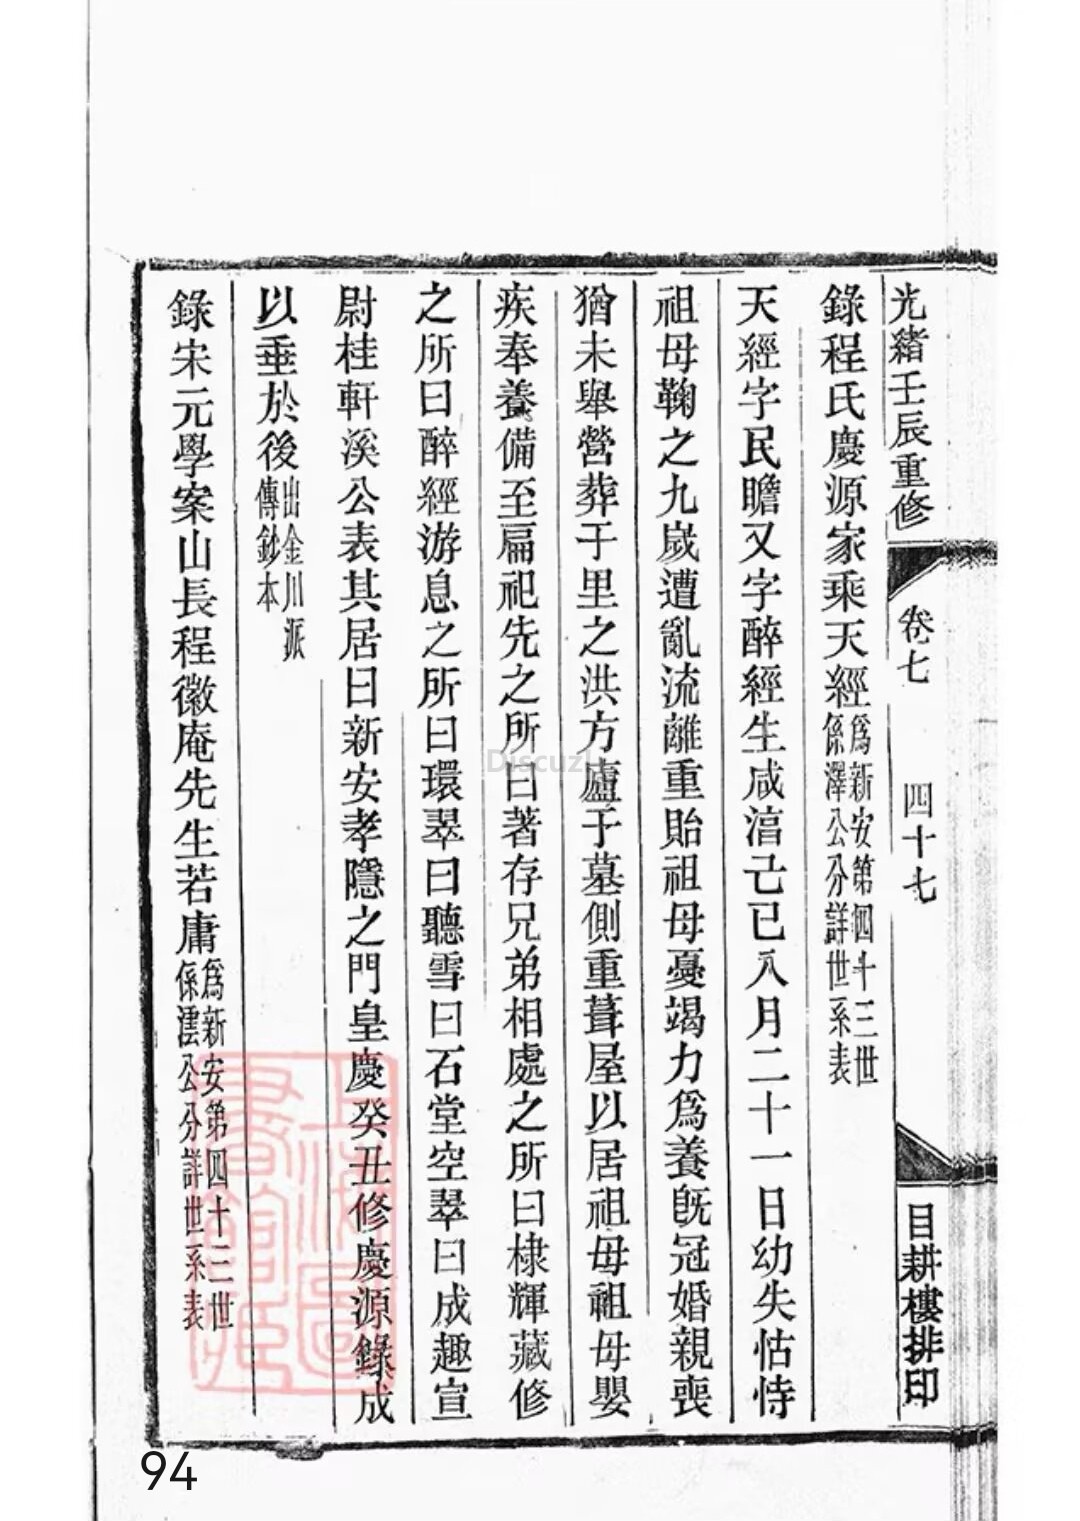 光緒壬辰重修
卷七
四十七
目耕樓排印
錄程氏慶源家乘天經爲新安第四十三世係澤公分詳世系表
天經字民瞻又字醉經生咸湻己巳八月二十一日幼失怙恃
祖母鞠之九歲遭亂流離重貽祖母憂竭力爲養旣冠婚親喪
猶未舉營葬于里之洪方廬于墓側重葺屋以居祖母祖母嬰
疾奉養備至扁祀先之所曰著存兄弟相處之所曰棣輝藏修
之所曰醉經游息之所曰環翠曰聽雪曰石堂空翠曰成趣宣
尉桂軒溪公表其居曰新安孝隱之門皇慶癸丑修慶源錄成
以垂於後出金川派傳鈔本
錄宋元學案山長程徽庵先生若庸爲新安第四十三世係澐公分詳世系表
Discuz!
94